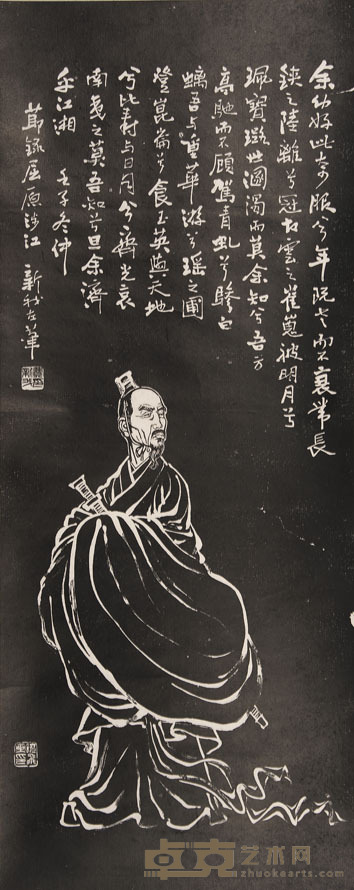 余幼好此奇服兮年既老而不衰带長
鋏之陸離兮冠切雲之崔嵬被明月兮
珮寶璐世溷濁而莫余知兮吾方
高馳而不顧駕青虬兮驂白
螭吾与重華游兮瑶之圃
登崑崙兮食玉英與天地
兮比寿与日月兮齊光哀
南夷之莫吾知兮旦余濟
乎江湘 壬子冬仲
節録屈原涉江 新我左筆
卓克艺术网
www.zhuokearts.com